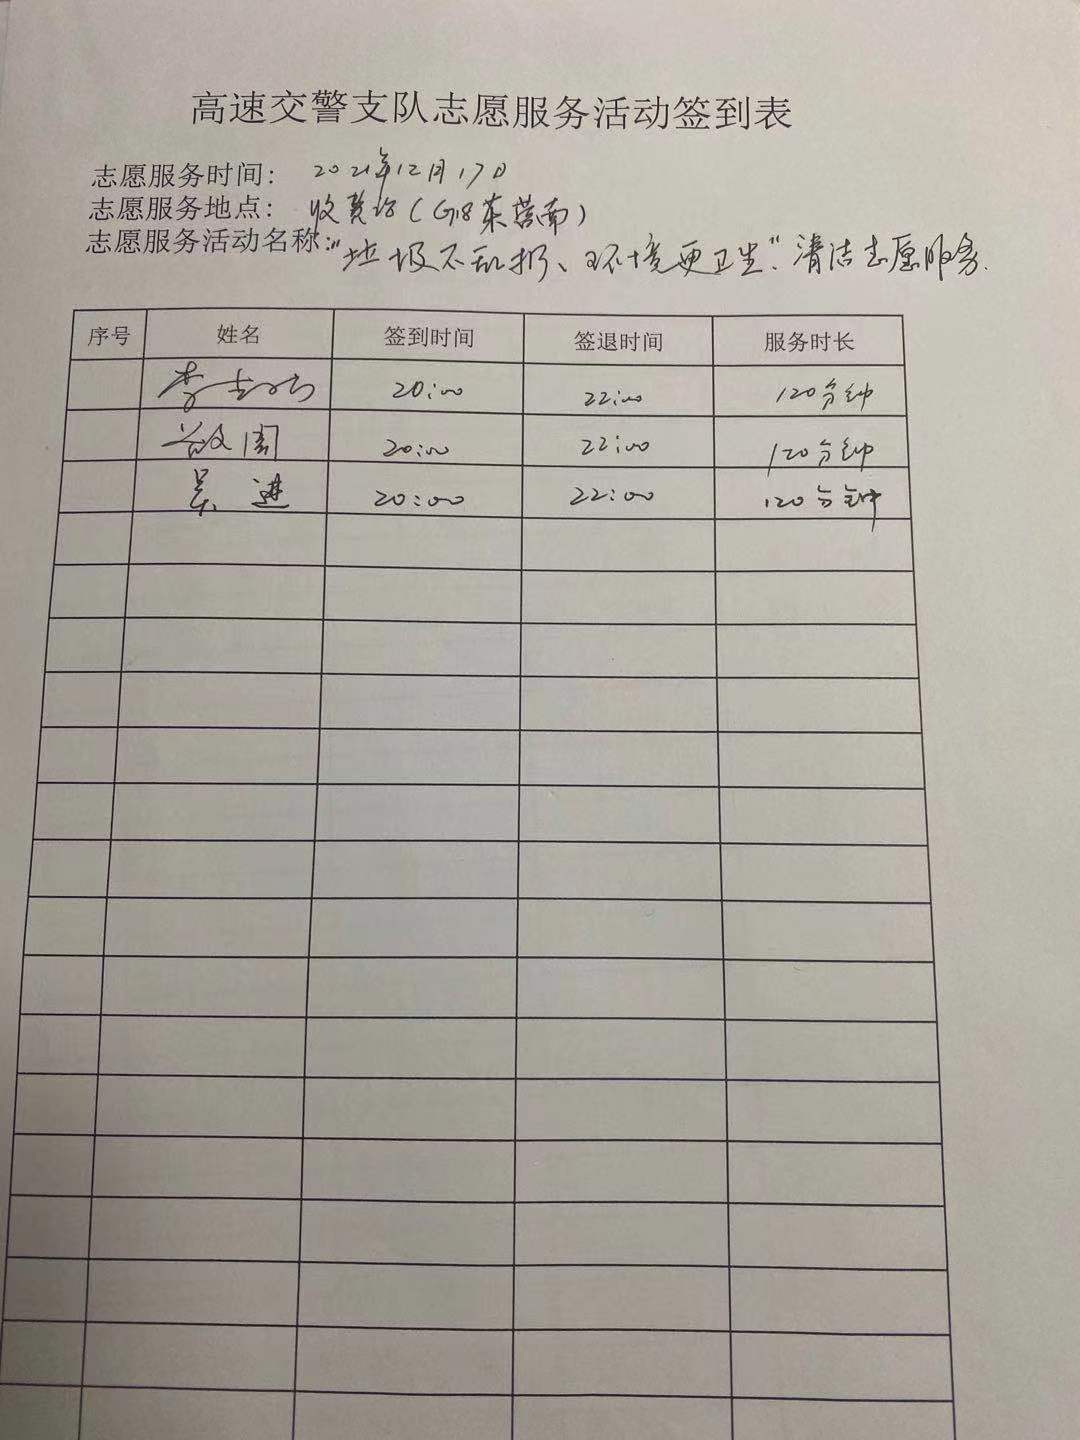 高速交警支队志愿服务活动签到表
志愿服务时间： 2021年12月17日
志愿服务地点： 收费站（G18莱营南）
志愿服务活动名称："垃圾不乱扔、环境更卫生"清洁志愿服务.
序号 姓名 签到时间 签退时间 服务时长
李 20:00 22:00 120分钟
周 20:00 22:00 120分钟
吴进 20:00 22:00 120分钟